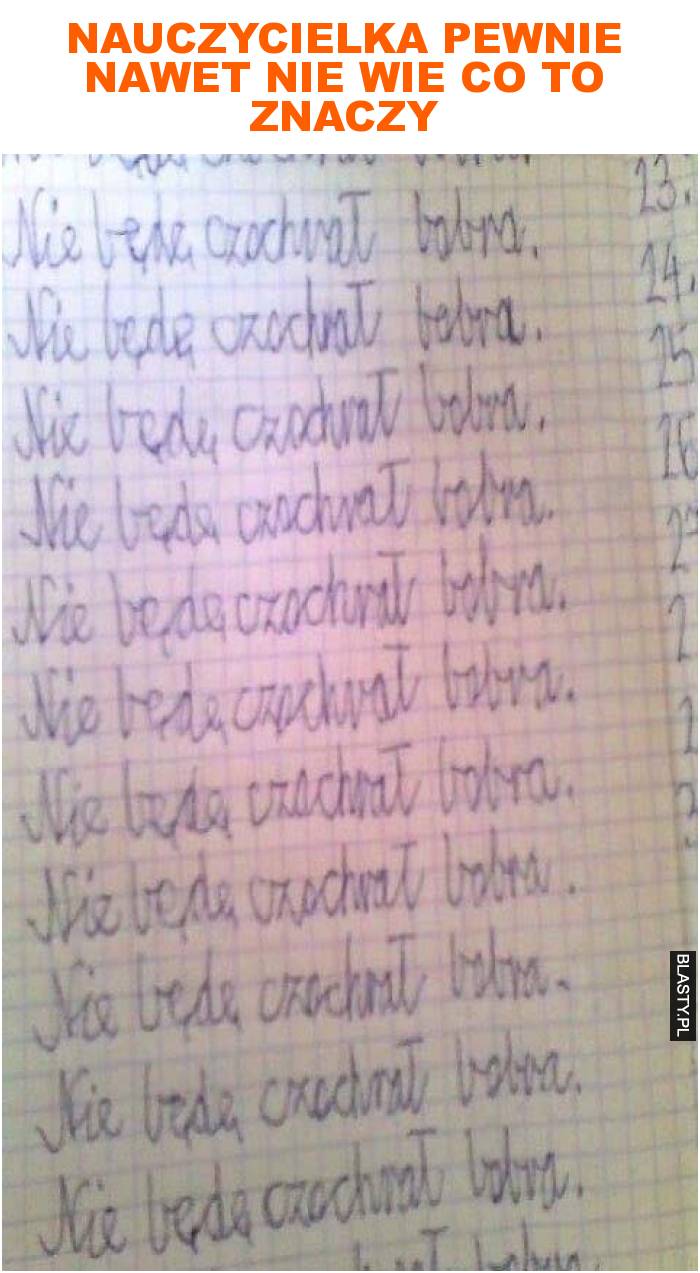 NAUCZYCIELKA PEWNIE
NAWET NIE WIE CO TO
ZNACZY
23.
Nie będę czochrał bobra.
24.
Nie będę czochrał bobra.
25
Nie będę czochrał bobra.
26
Nie będę czochrał bobra.
2
Nie będę czochrał bobra.
2
Nie będę czochrał bobra.
2
Nie będę czochrał bobra.
Nie będę czochrał bobra.
Nie będę czochrał bobra.
BLASTY.PL
Nie będę czochrał bobra.
Nie będę czochrał bobra.